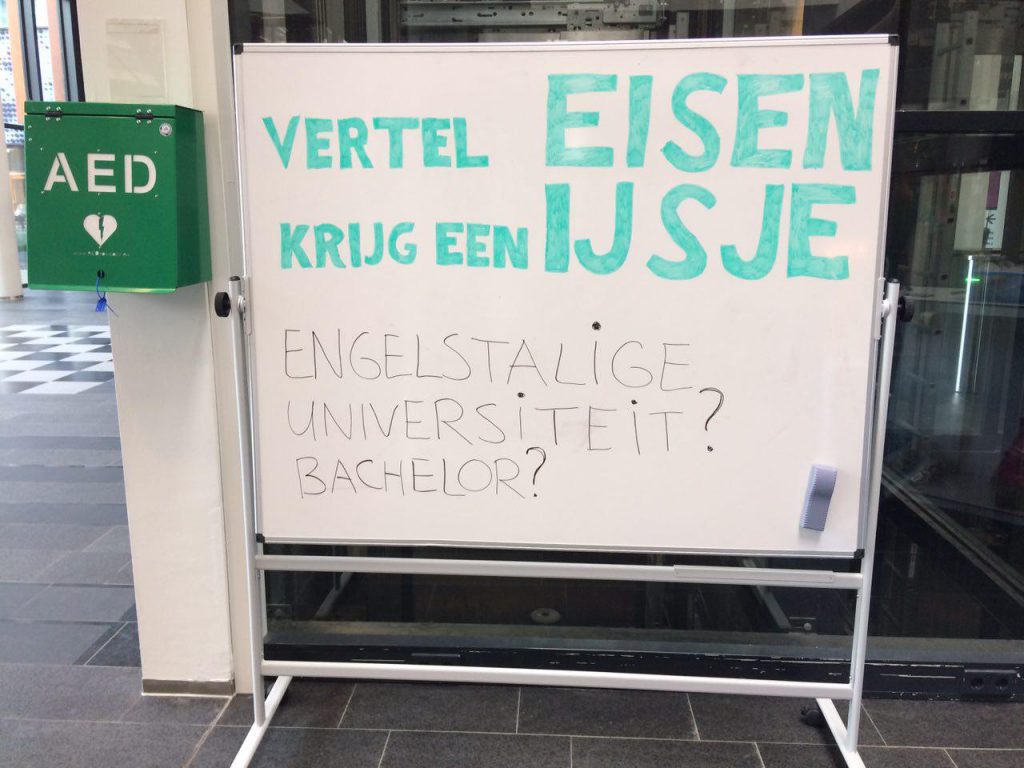 AED
VERTEL EISEN
KRIJG EEN IJSJE
ENGELSTALIGE
UNIVERSITEIT?
BACHELOR?